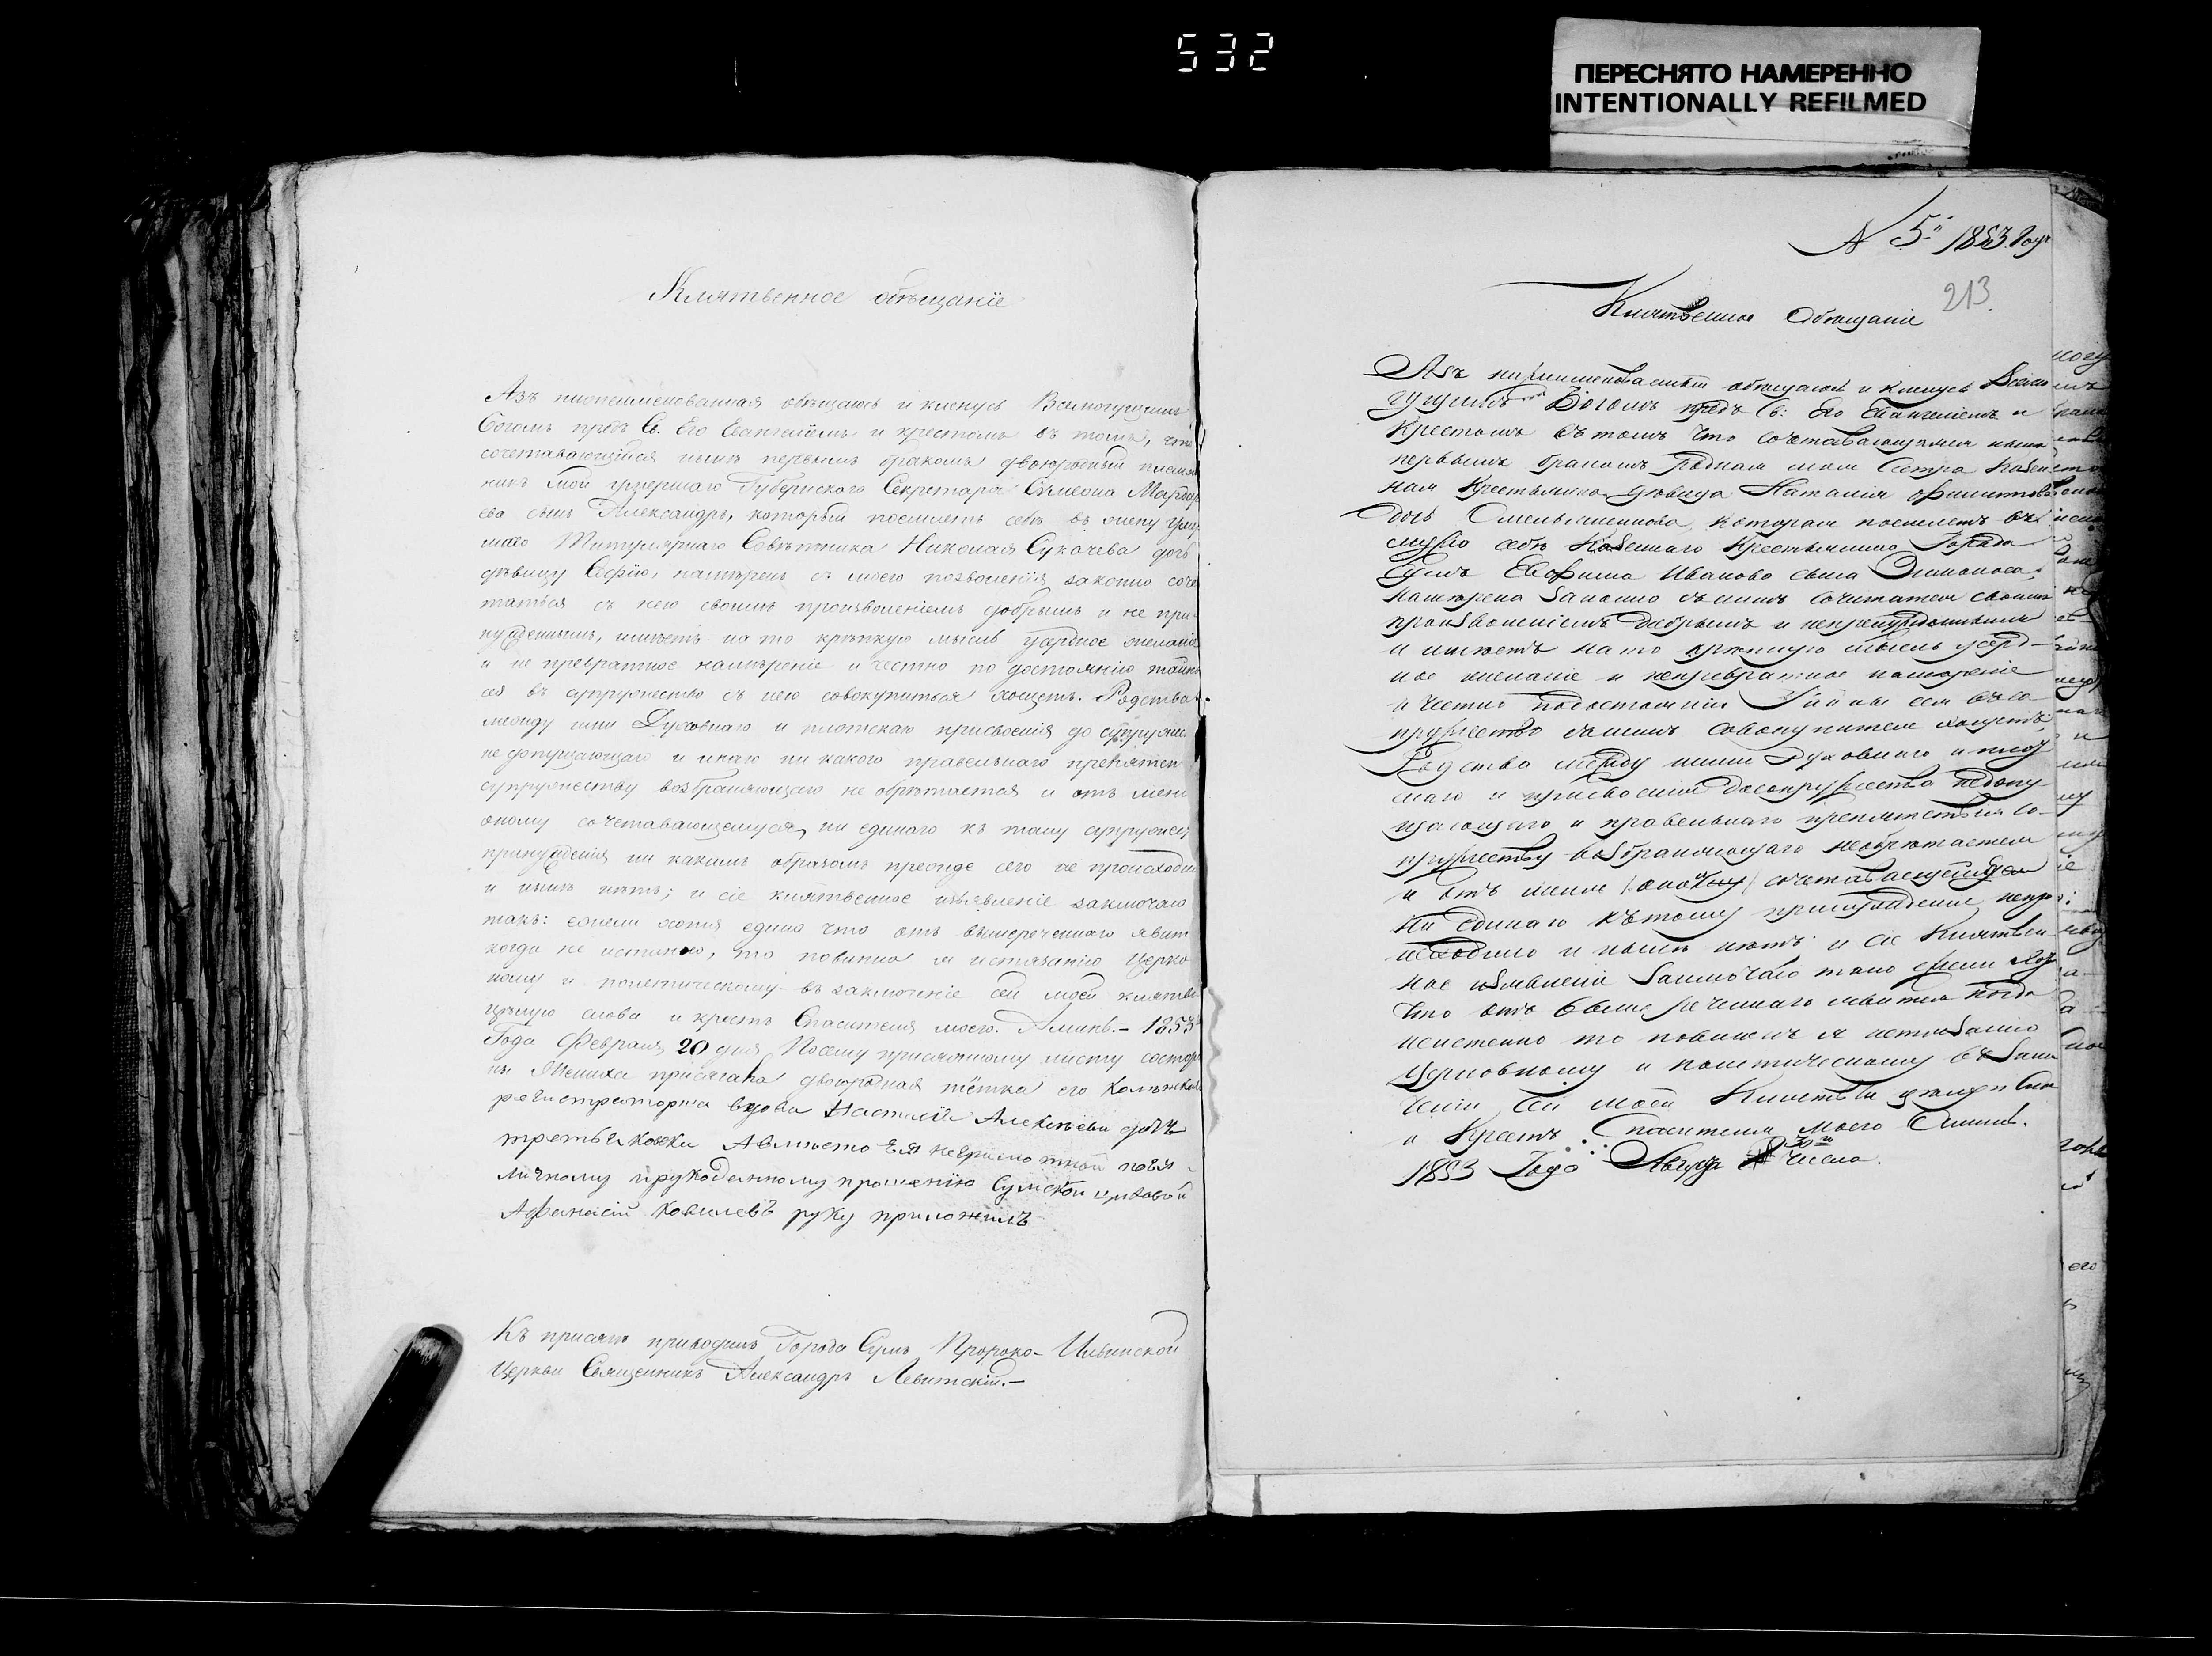 532
ПЕРЕСНЯТО НАМЕРЕННО
INTENTIONALLY REFILMED
Клятвенное обѣщаніе
Азъ нижеименованная обѣщаюсь и кленусь Всемогущимъ
Богомъ предъ Св. Его Евангеліемъ и крестомъ въ томъ, что
сочетавающійся нынѣ первымъ бракомъ двоюродный племян
никъ мой умершаго Губернскаго Секретаря Сѵмеона
ева сынъ Александръ, который поемлетъ себѣ въ жену умер
шаго Титулярнаго Совѣтника Николая Сукачева дочь
дѣвицу Софію, намѣренъ съ моего позволенія законно соче
таться съ нею своимъ произволеніемъ добрымъ и не при
нужденнымъ, имѣетъ на то крѣпкую мысль усердное желаніе
и не превратное намѣреніе и честно по достоянію тайны
сея въ супружество съ нею совокупиться хощетъ. Родства
между ими Духовнаго и плотскаго присвоенія до супруже
не допущающаго и инаго ни какого правельнаго препятст
супружеству возбраняющаго не обрѣтается и отъ мене
оному сочетавающемуся ни единаго къ тому супружес
принужденія ни какимъ образомъ прежде сего не происходи
и нынѣ нѣтъ; и сіе клятвенное изъявленіе заключаю
такъ: ежели хотя едино что отъ вышереченнаго явит
когда не истинно, то повинна я истязанію Церко
ному и политическому въ заключеніе сей моей клятвы
цѣлую слова и крестъ Спасителя моего. Аминь.- 1853
Года Февраля 20 дня. Посему присяжному листу состор
ны Жениха присягала двоюродная тётка его Колежска
регистраторша вдова Настасія Алексѣева дочь
третьяковка Авмѣсто Ея неграмотной поея
личному ирукоданному прошенію Сумской
Афанасій Ковалевъ руку приложилъ
Къ присягѣ приводилъ Города Сумъ Пророко-Ильинской
Церкви Священникъ Александръ Левитскій.-
N 5й 1853 Года
213.
Клятвенное Обѣщаніе
Азъ нижеименованный обѣщаюсь и кленусь Всемо
гущимъ Богомъ предъ Св: Его Евангеліемъ и
Крестомъ вътомъ что сочетавающаяся нынѣ
первымъ бракомъ родная моя Сестра Казен
ная Крестьянка дѣвица Наталія Филиппова
дочь Омельяненкова, которая поемлетъ въ
мужа себѣ Казеннаго Крестьянина Города
Сумъ Евфима Иванова сына
намѣрена Законно снимъ сочитатся своимъ
произволеніемъ Добрымъ и непринужденнымъ
и имѣетъ нато крѣпкую мысль усерд-
ное желаніе и непревратное намѣреніе
и честно подостоянію Тайны сея въсо
пружество снимъ совокупится хощетъ,
Родства между ними Духовнаго и плоц
скаго и присвоенія досопружества недопу
щающаго и правельнаго препятствія со-
пружеству возбраняющаго необрѣтается
и отъ мене оной сочетавающейся
ни единаго Кътому принужденія непро
исходило и нынѣ нѣтъ и сіе Клятвен
ное изъявленіе Заключаю тако ежели хотя
что отъ выше реченнаго явится когда
неистенно то повиненъ я истязанію
Церковному и политическому въ Заклю
ченіи Сей моей Клятвы цѣлую Слова
и Крестъ Спасителя Моего Аминь.
1853 Года 30го числа.